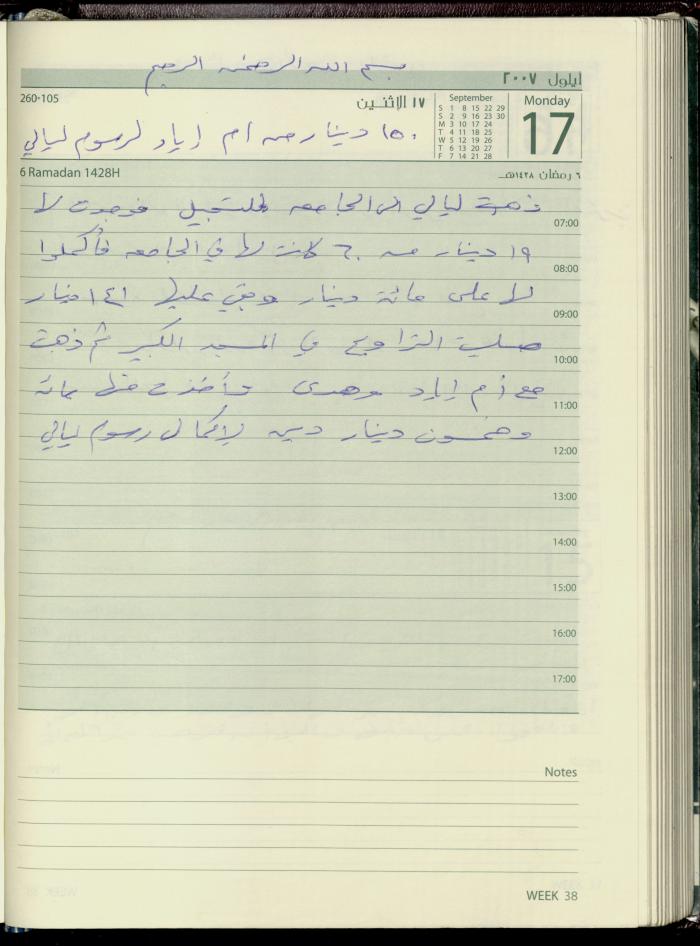 بسم الله الرحمن الرحيم
ايلول ٢٠٠٧
260-105
١٧ الاثنين
September
S 1 8 15 22 29
S 2 9 16 23 30
M 3 10 17 24
T 4 11 18 25
W 5 12 19 26
T 6 13 20 27
F 7 14 21 28
Monday
17
١٥٠ دينار من ام اياد لرسوم ليالي
6 Ramadan 1428H
٦ رمضان ١٤٢٨هـ
ذهبت ليالي الى الجامعه للتسجيل فوجدت لا
07:00
١٩ دينار من ٦٠ كانت لها في الجامعه فأكملوا
08:00
لا على مائة دينار وبقي عليها ١٤١ دينار
09:00
صليت التراويح في المسجد الكبير ثم ذهبت
10:00
مع أم اياد وهدى وأخذت منها مائة
11:00
وخمسون دينار دين لإكمال رسوم ليالي
12:00
13:00
14:00
15:00
16:00
17:00
Notes
WEEK 38